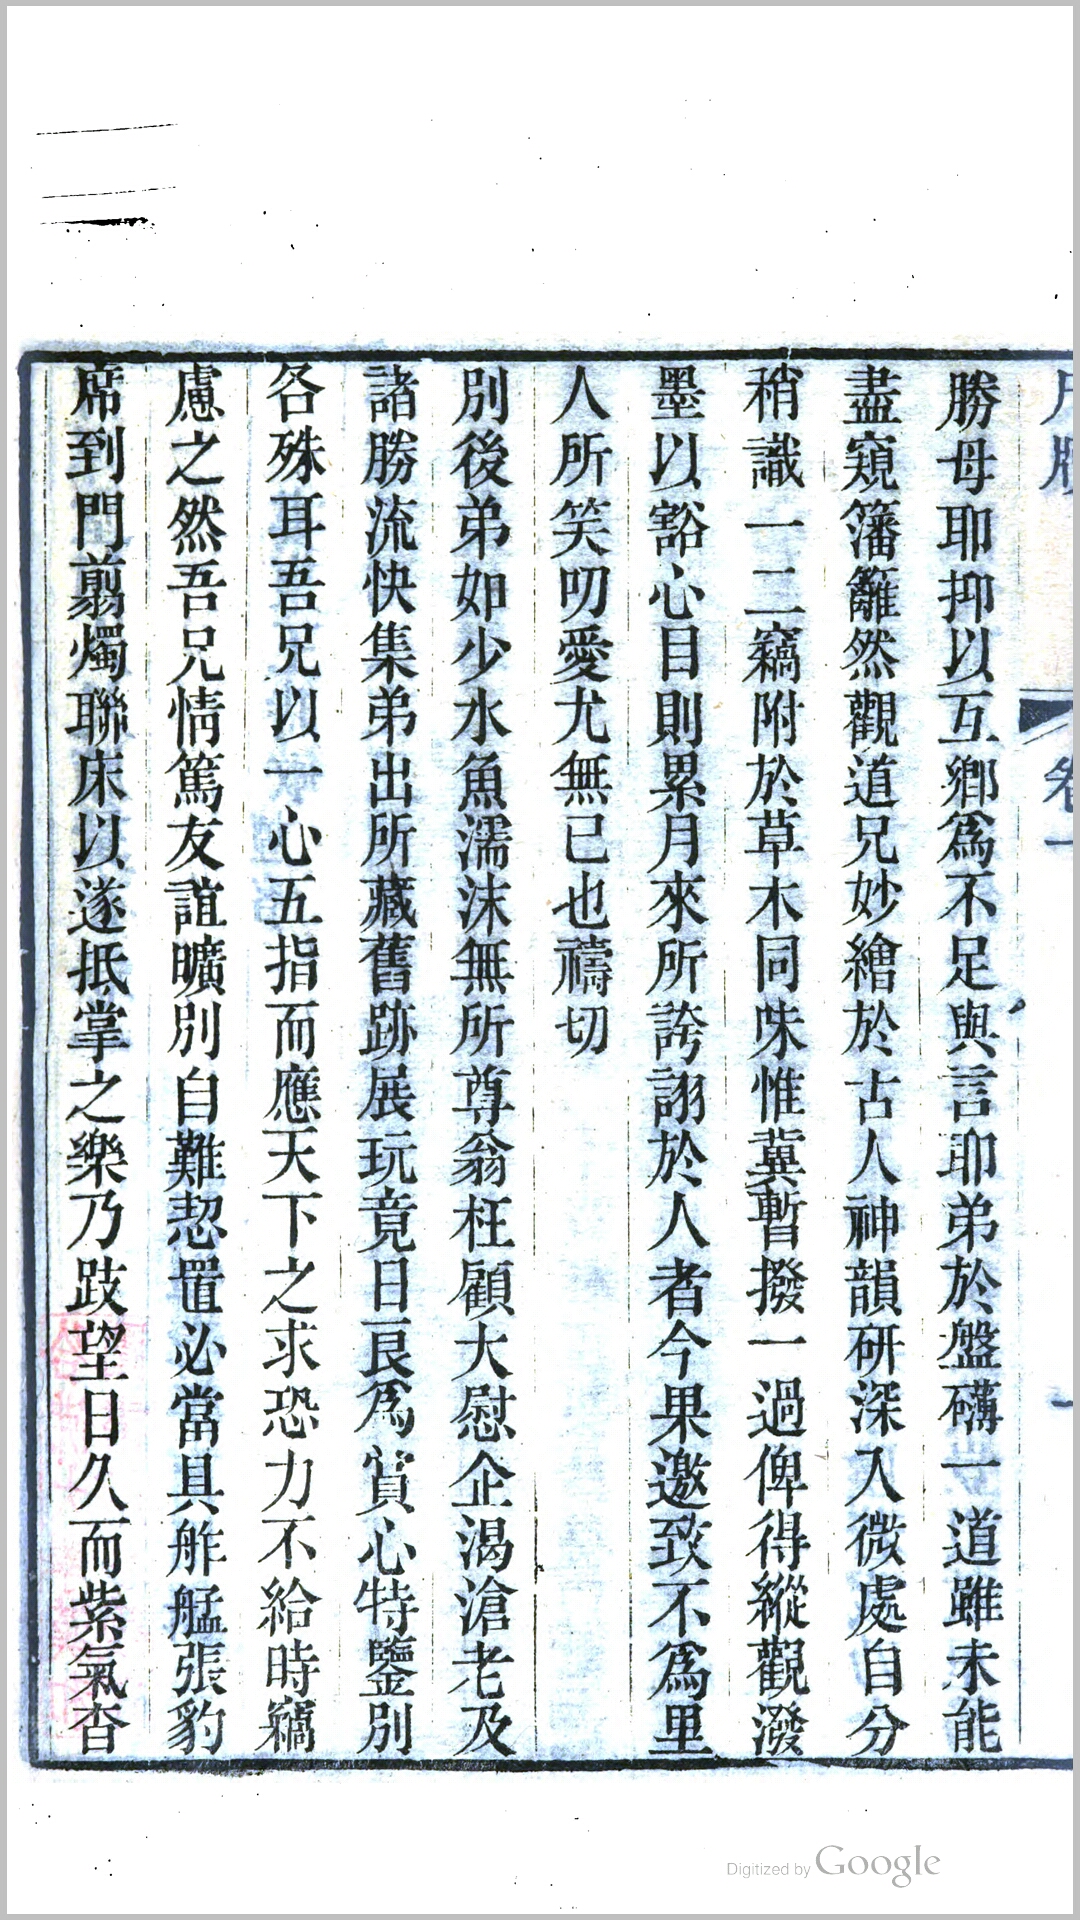 勝母耶抑以互鄉爲不足與言耶弟於盤礴一道雖未能
盡窺籓籬然觀道兄妙繪於古人神韻研深入微處自分
稍識一二竊附於草木同味惟冀暫撥一過俾得縱觀潑
墨以豁心目則累月來所誇詡於人者今果邀致不爲里
人所笑叨愛尤無已也禱切
別後弟如少水魚濡沫無所尊翁枉顧大慰企渴滄老及
諸勝流快集弟出所藏舊跡展玩竟日良爲賞心特鑒別
各殊耳吾兄以一心五指而應天下之求恐力不給時竊
慮之然吾兄情篤友誼曠別自難恝置必當具舴艋張豹
席到門翦燭聯床以遂抵掌之樂乃跂望日久而紫氣杳
卷一
Digitized by Google